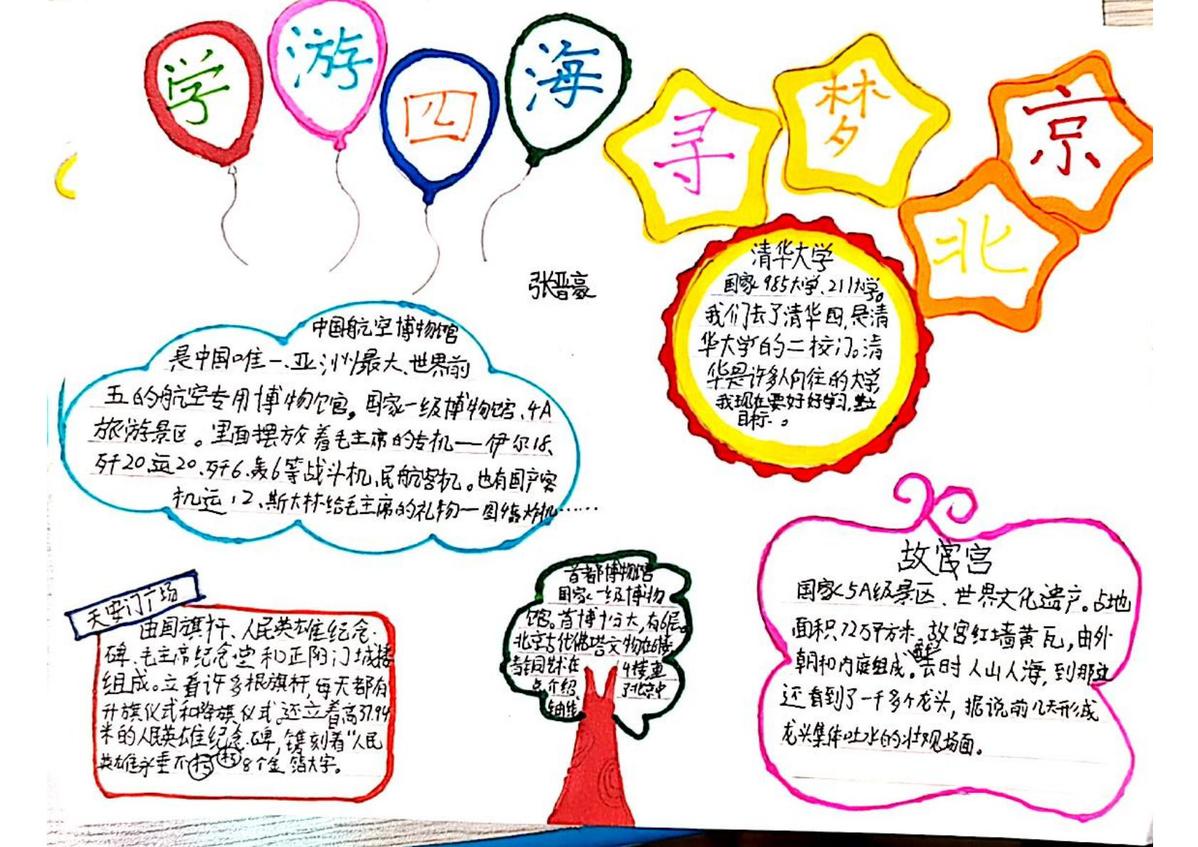 学游四海
寻梦北京
张晋豪
清华大学
国家985大学、211大学。
我们去了清华园,是清
华大学的二校门。清
华是许多人向往的大学
我现在要好好学习,
目标。
中国航空博物馆
是中国唯一、亚洲最大、世界前
五的航空专用博物馆。国家一级博物馆、4A
旅游景区。里面摆放着毛主席的专机——伊尔18、
歼20、运20、歼6、轰6等战斗机、民航客机。也有国产客
机运12、斯大林给毛主席的礼物—图
故宫
国家5A级景区、世界文化遗产。占地
面积72万平方米。故宫红墙黄瓦,由外
朝和内庭组成。去时人山人海,到那
还看到了一千多个龙头,据说前几天形成
龙头集体吐水的壮观场面。
天安门广场
由国旗杆、人民英雄纪念
碑、毛主席纪念堂和正阳门城楼
组成。立着许多根旗杆,每天都有
升旗仪式和降旗仪式。还立着高37.94
米的人民英雄纪念碑,镌刻着“人民
英雄永垂不朽”8个金箔大字。
首都博物馆
国家一级博物
馆。首博十分大,有6层。
北京古代佛塔文物在6楼
4楼里